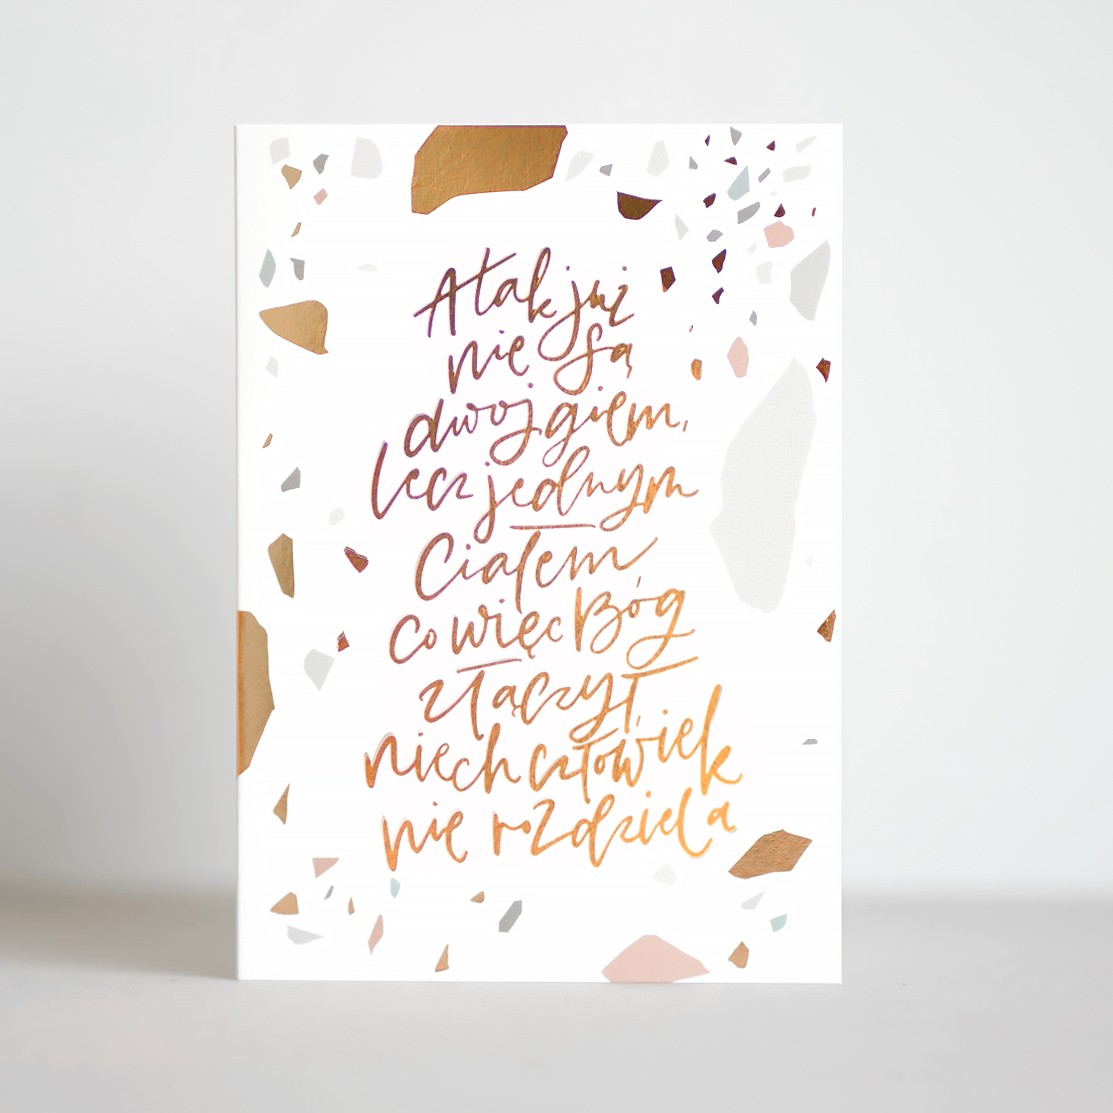 A tak już
nie są
dwojgiem,
lecz jednym
Ciałem
co więc Bóg
złączył,
niech człowiek
nie rozdziela